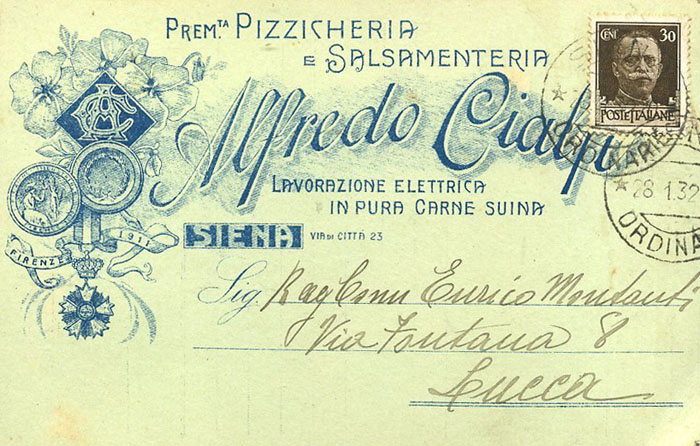 PREM.TA PIZZICHERIA
E SALSAMENTERIA
Alfredo Cialfi
LAVORAZIONE ELETTRICA
IN PURA CARNE SUINA
SIENA VIA DI CITTÀ 23
FIRENZE 1911
CENT 30
POSTE ITALIANE
28.1.32
ORDINA
Sig. Rag Comm Enrico Montanti
Via Fontana 8
Lucca